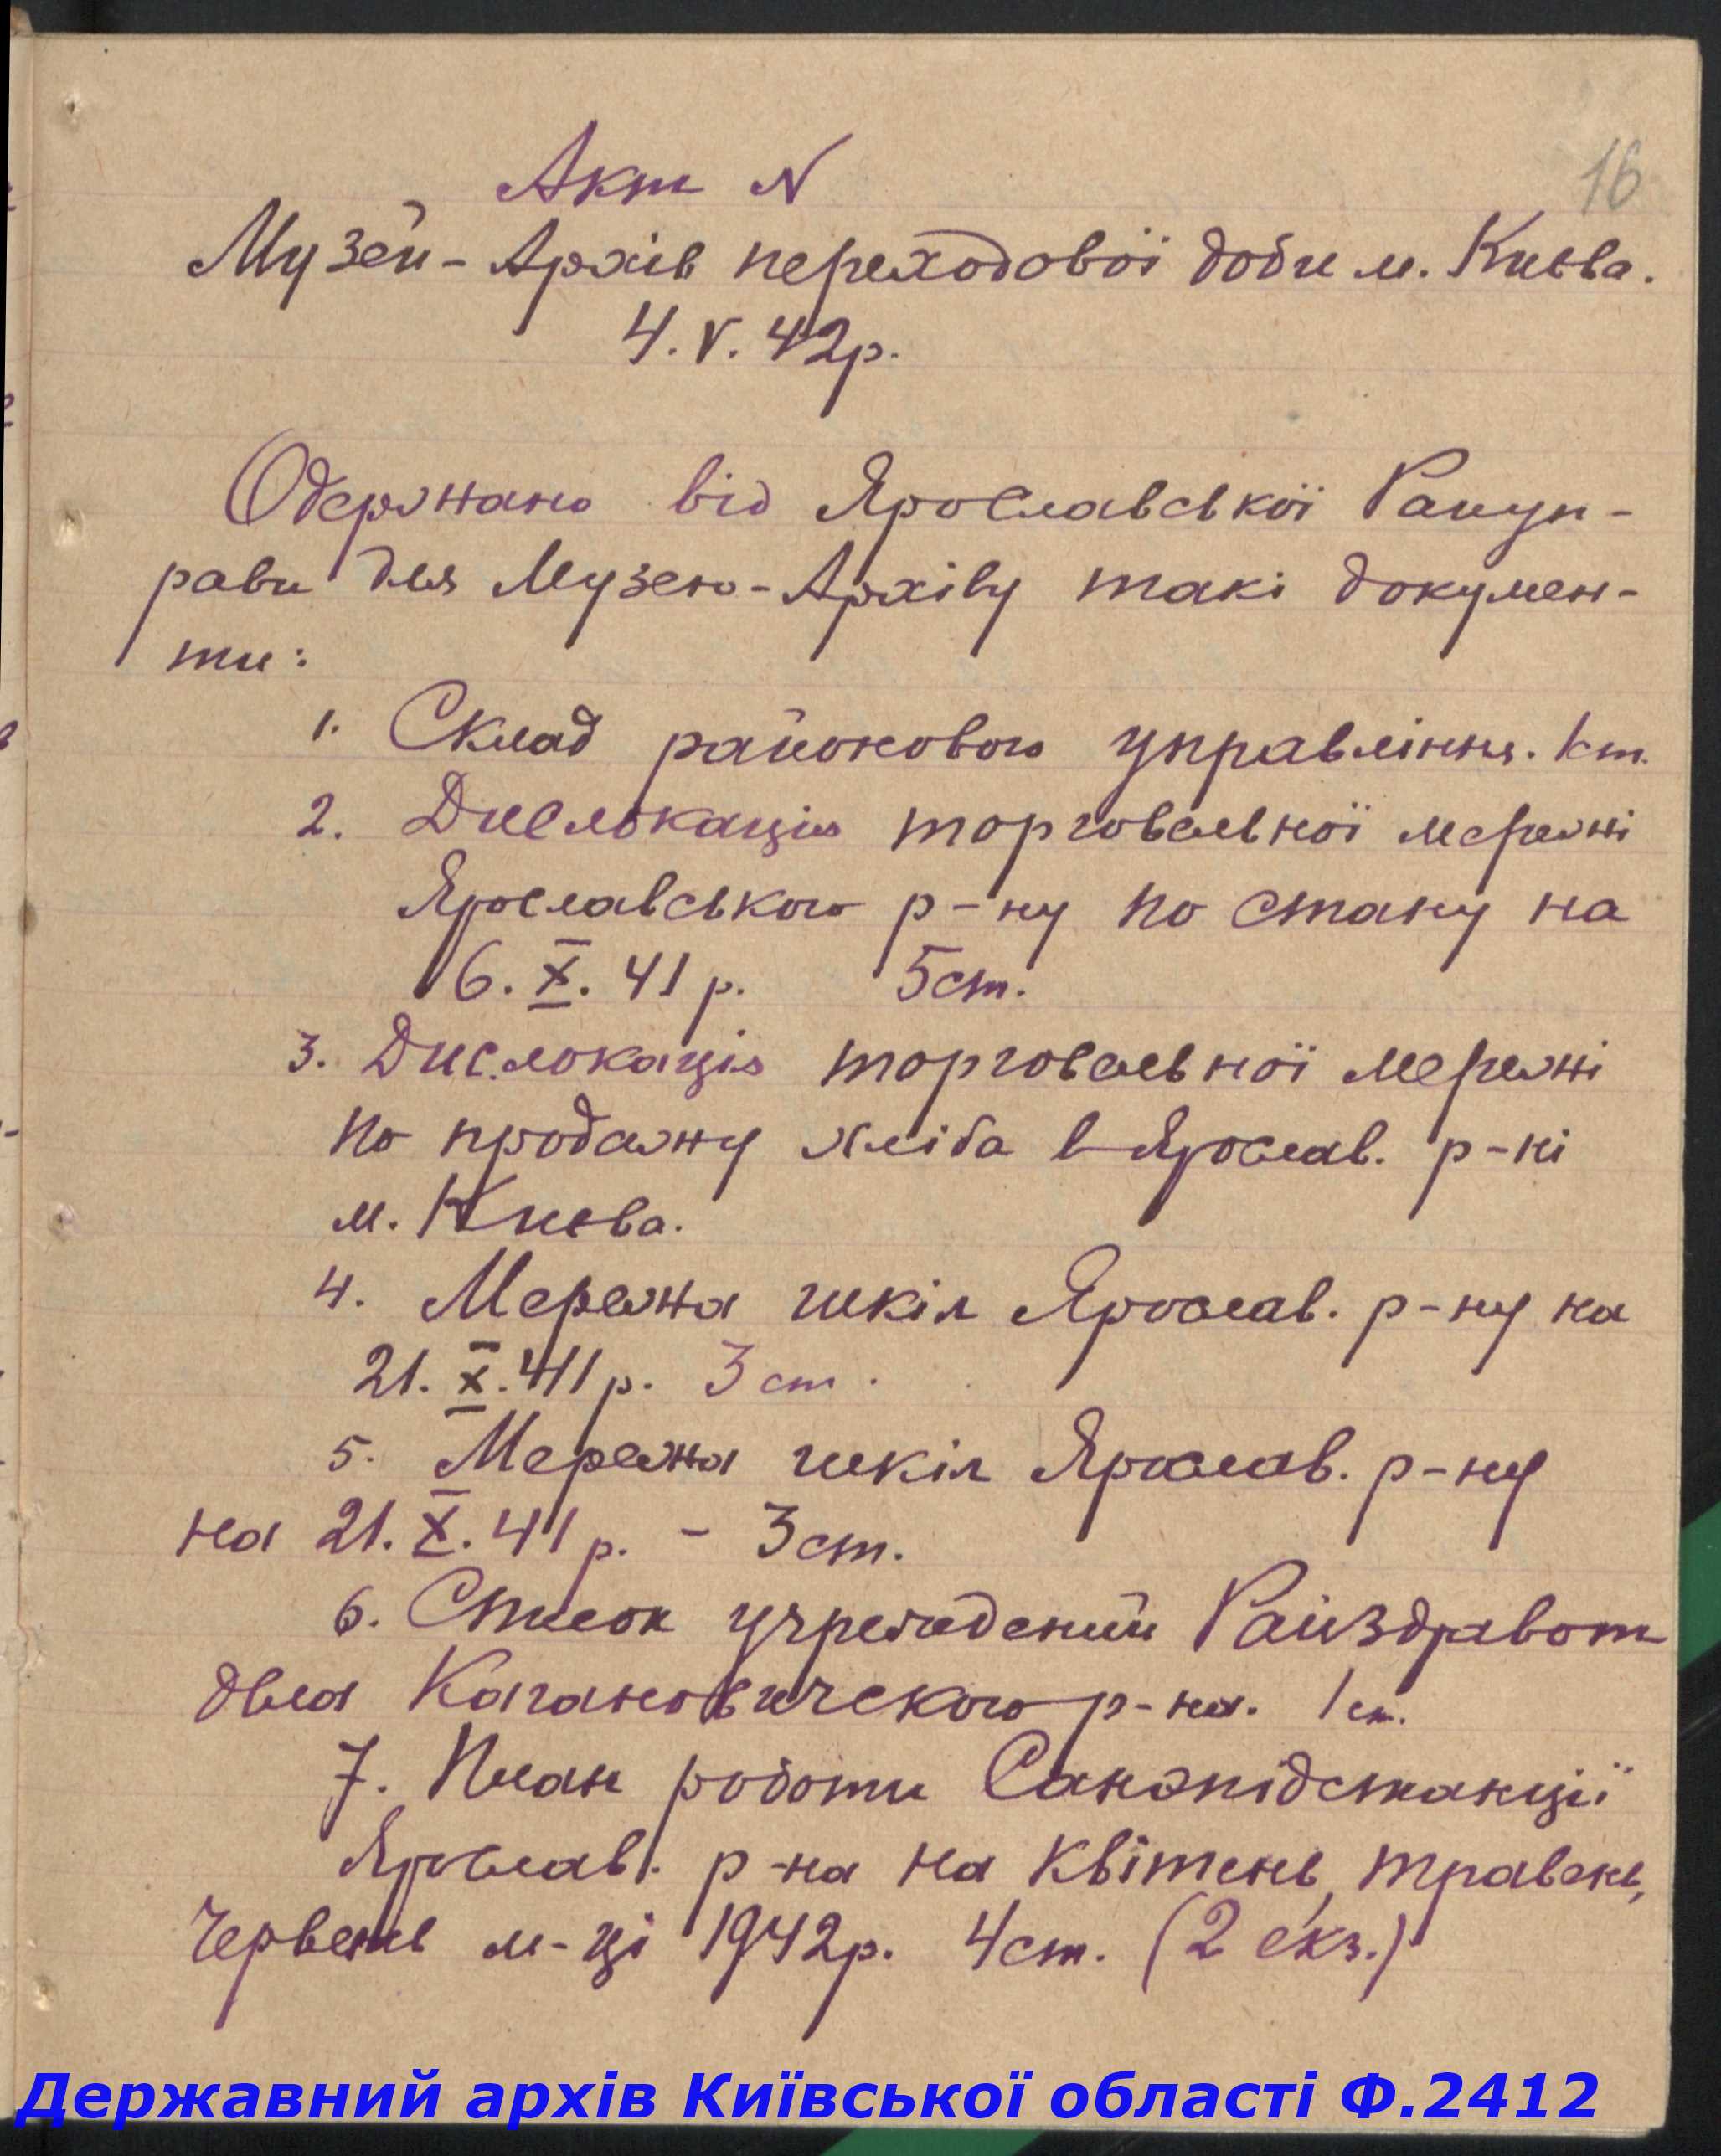 16
Акт N
Музей-Архів переходової доби м. Києва.
4.V.42р.
Одержано від Ярославської Райуп-
рави для Музею-Архіву такі докумен-
ти:
1. Склад районового управління. 1ст.
2. Дислокація торговельної мережі
Ярославського р-ну по стану на
16.X.41р. 5ст.
3. Дислокація торговельної мережі
по продажу хліба в Яросл. р-ні
м. Києва.
4. Мережа шкілЯрослав. р-ну на
21.X.41р. 3ст.
5. Мережа шкіл Ярослав. р-ну
на 21.X.41р. - 3ст.
6. Список учреждений Райздравот
дела Кагановического р-на. 1ст.
7. План роботи Санэпідстанції
Ярослав. р-на на квітень, травень,
червень м-ці 1942р. 4ст. (2 екз.)
Державний архів Київської області Ф.2412